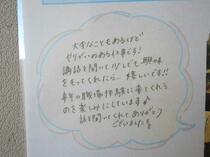 大変なこともあるけど
やりがいのある仕事です!
講話を聞いて少しでも興味
をもってくれたら、嬉しいです!!
来年の職場体験に来てくれる
のを楽しみにしています♪
話を聞いてくれてありがとう
ございました!!